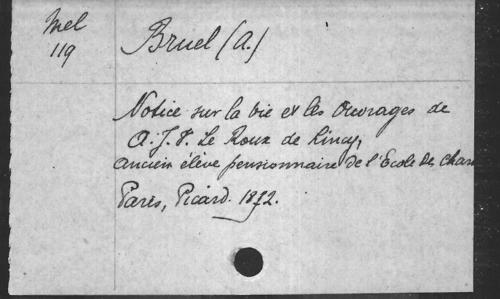 Mel
119
Bruel (A.)
Notice sur la vie et les Ouvrages de
A. J. V. Le Roux de Lincy,
ancien élève pensionnaire de l'Ecole des Char
Paris, Picard. 1872.